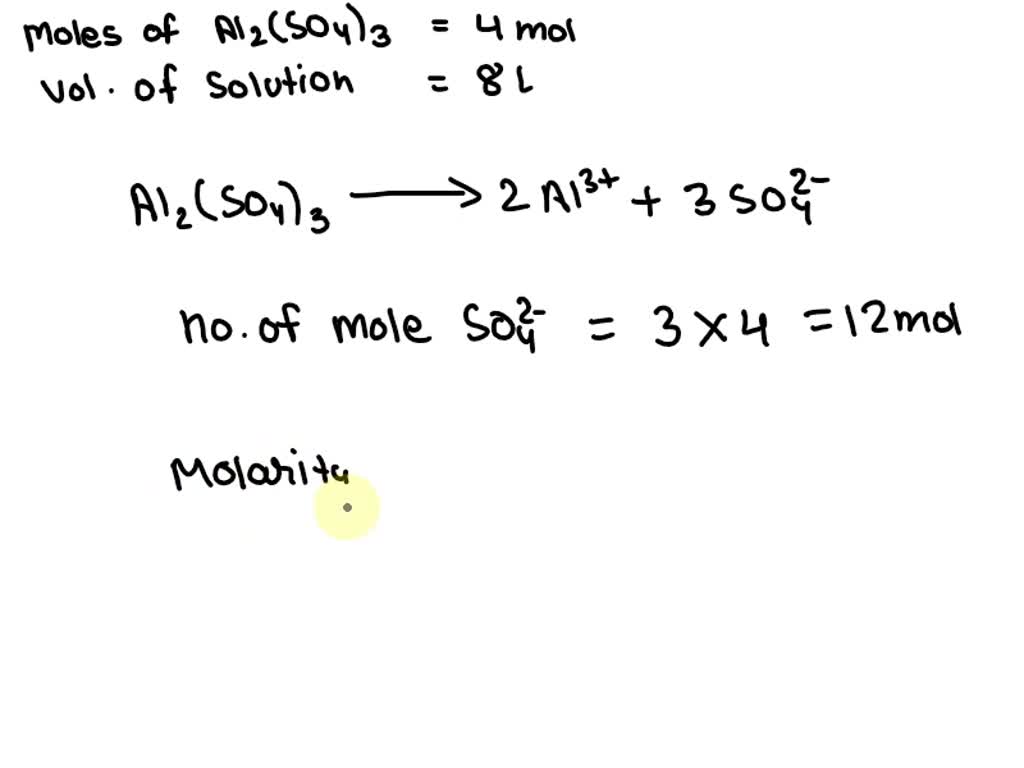 moles of Al₂(SO₄)₃ = 4 mol
vol. of solution = 8 L
Al₂(SO₄)₃ → 2 Al³⁺ + 3 SO₄²⁻
no. of mole SO₄²⁻ = 3 × 4 = 12 mol
Molarity